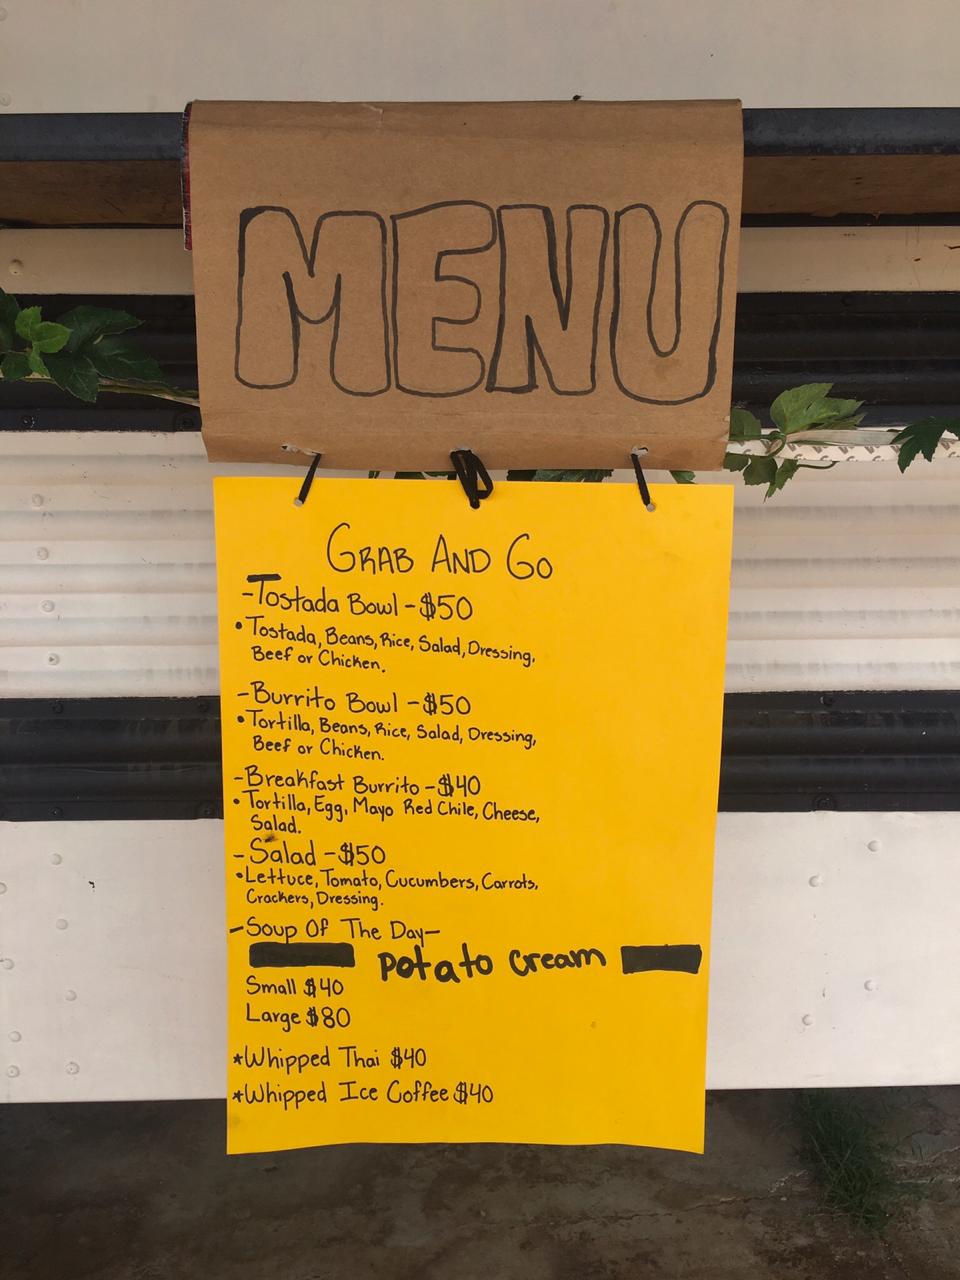 MENU
GRAB AND GO
-Tostada Bowl -$50
•Tostada, Beans, Rice, Salad, Dressing,
Beef or Chicken.
-Burrito Bowl -$50
•Tortilla, Beans, Rice, Salad, Dressing,
Beef or Chicken.
-Breakfast Burrito -$40
•Tortilla, Egg, Mayo Red Chile, Cheese,
Salad.
-Salad -$50
•Lettuce, Tomato, Cucumbers, Carrots,
Crackers, Dressing.
-Soup Of The Day-
Potato cream
Small $40
Large $80
*Whipped Thai $40
*Whipped Ice Coffee $40